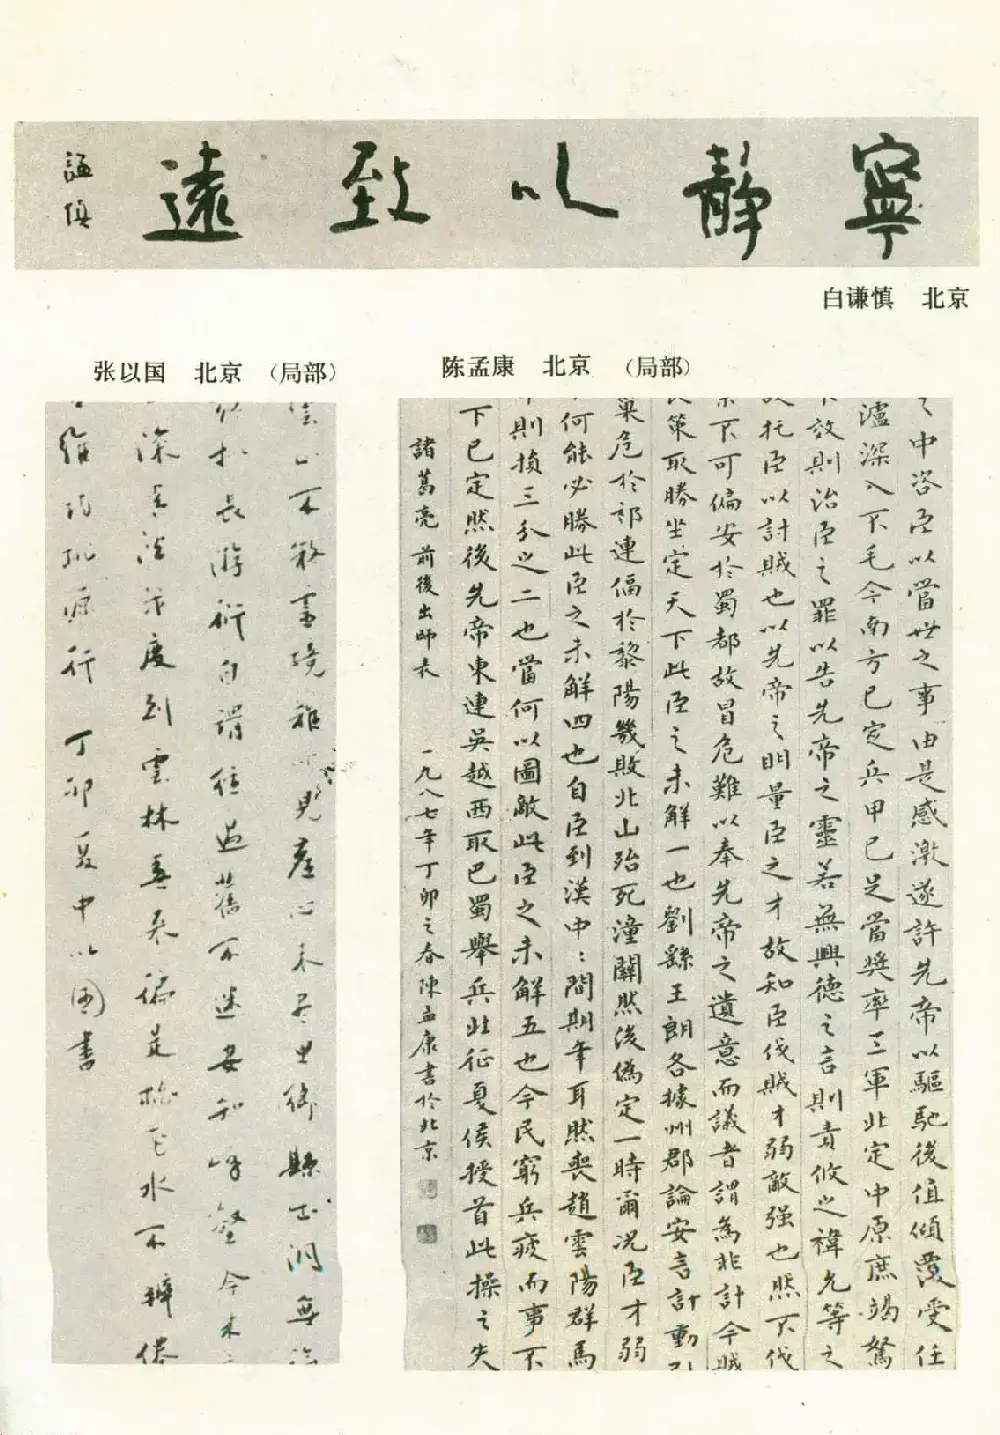 寧靜以致遠
謙慎
白谦慎 北京
张以国 北京 （局部）
陈孟康 北京 （局部）
之中咨臣以當世之事由是感激遂許先帝以驅馳後值傾覆受任
瀘深入不毛今南方已定兵甲已足當獎率三軍北定中原庶竭駑
不效則治臣之罪以告先帝之靈若無興德之言則責攸之禕允等之
故托臣以討賊也以先帝之明量臣之才故知臣伐賊才弱敵强也然不伐
不可偏安於蜀都故冒危難以奉先帝之遺意而議者謂為非計今賊
長策取勝坐定天下此臣之未解一也劉繇王朗各據州郡論安言計動引
巢危於祁連偪於黎陽幾敗北山殆死潼關然後偽定一時爾況臣才弱
何能必勝此臣之未解四也自臣到漢中〻間期年耳然喪趙雲陽群馬
則損三分之二也當何以圖敵此臣之未解五也今民窮兵疲而事不
下已定然後先帝東連吳越西取巴蜀舉兵北征夏侯授首此操之失
諸葛亮 前後出師表 一九八七年丁卯之春陳孟康書於北京
不疑靈境難聞見塵心未盡思鄉縣出洞無論
擬長游衍自謂經過舊不迷安知峰壑今來
深青溪幾度到雲林春來徧是桃花水不辨僊
維詩桃源行 丁卯夏中以國書